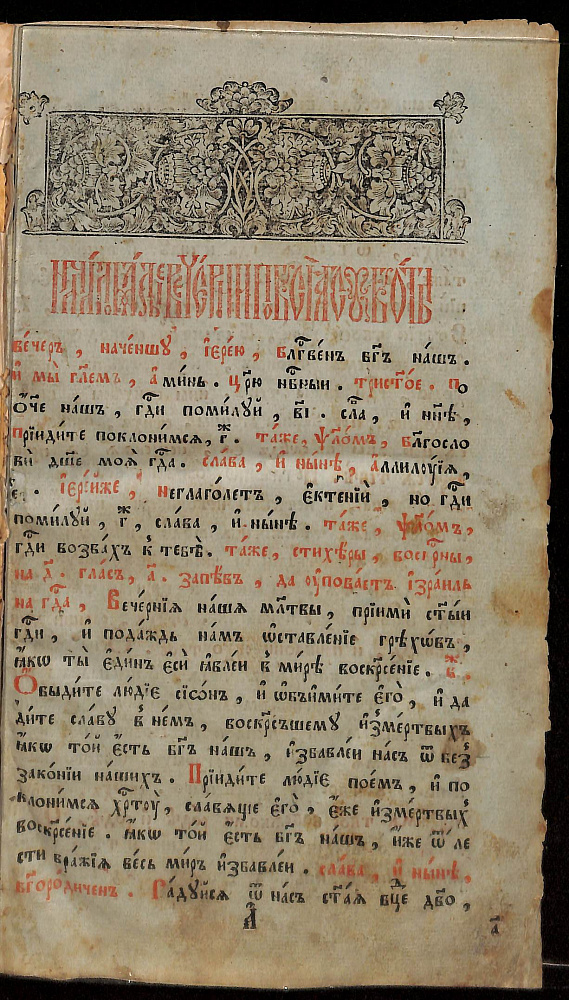 ве́черъ , наче́ншу , і҆ере́ю , бл҃гве́нъ бг҃ъ на́шъ .
и҆ мы̀ гл҃емъ , а҆ми́нь . цр҃ю нб҃ныи . трист҃о́е . по
ѻ҆́ч҃е на́шъ , гд҃и поми́луй , в҃і . сла̑ , и҆ нн҃ѣ ,
прїиди́те поклони́мсѧ , г҃ж . та́же , ѱало́мъ , бл҃госло
вѝ дш҃е моѧ̀ гд҃а . сла́ва , и҆ ны́нѣ , а҆ллилоу́їѧ ,
і҆ере́йже , неглаго́летъ , є҆ктенїи̑ , но гд҃и
поми́луй , г҃ж , сла́ва , и҆ ны́нѣ . та́же , ѱало́мъ ,
гд҃и возва́хъ к̾ тебѣ̀ . та́же , стихѣ́ры , воскр҃ны ,
на д҃ . гла́съ , а҃ . запѣ́въ , да ᲂу҆пова́етъ і҆зра́иль
на гд҃а , Вече́рнїѧ на́шѧ мл҃твы , прїимѝ ст҃ы́и
гд҃и , и҆ пода́ждь на́мъ ѡ҆ставле́нїе грѣхѡ́въ ,
ꙗ҆́кѡ ты̀ є҆ди́нъ є҆сѝ ꙗ҆вле́и в̾ ми́рѣ воскр҃се́нїе .
Ѡ҆быди́те лю́дїе сїѡ́нъ , и҆ ѡ҆бъи҆ми́те є҆го̀ , и҆ да
ди́те сла́ву в̾ не́мъ , воскр҃съшему и҆зме́ртвыхъ
ꙗ҆́кѡ то́й є҆́сть бг҃ъ на́шъ , и҆збавле́и на́съ ѿ без̾
зако́нїи на́шихъ . Прїиди́те лю́дїе пое́мъ , и҆ по
клони́мсѧ хр҃тоу̀ , сла́вѧще є҆го̀ , є҆́же и҆зме́ртвыхъ
воскр҃се́нїе . ꙗ҆́кѡ то́й є҆́сть бг҃ъ на́шъ , и҆́же ѿ ле
сти вра́жїѧ ве́сь ми́ръ и҆збавле́и . сла́ва , и҆ ны́нѣ ,
бг҃оро́диченъ . Ра́дуйсѧ ѿ на́съ ст҃а́ѧ бц҃де дв҃о ,
а҃